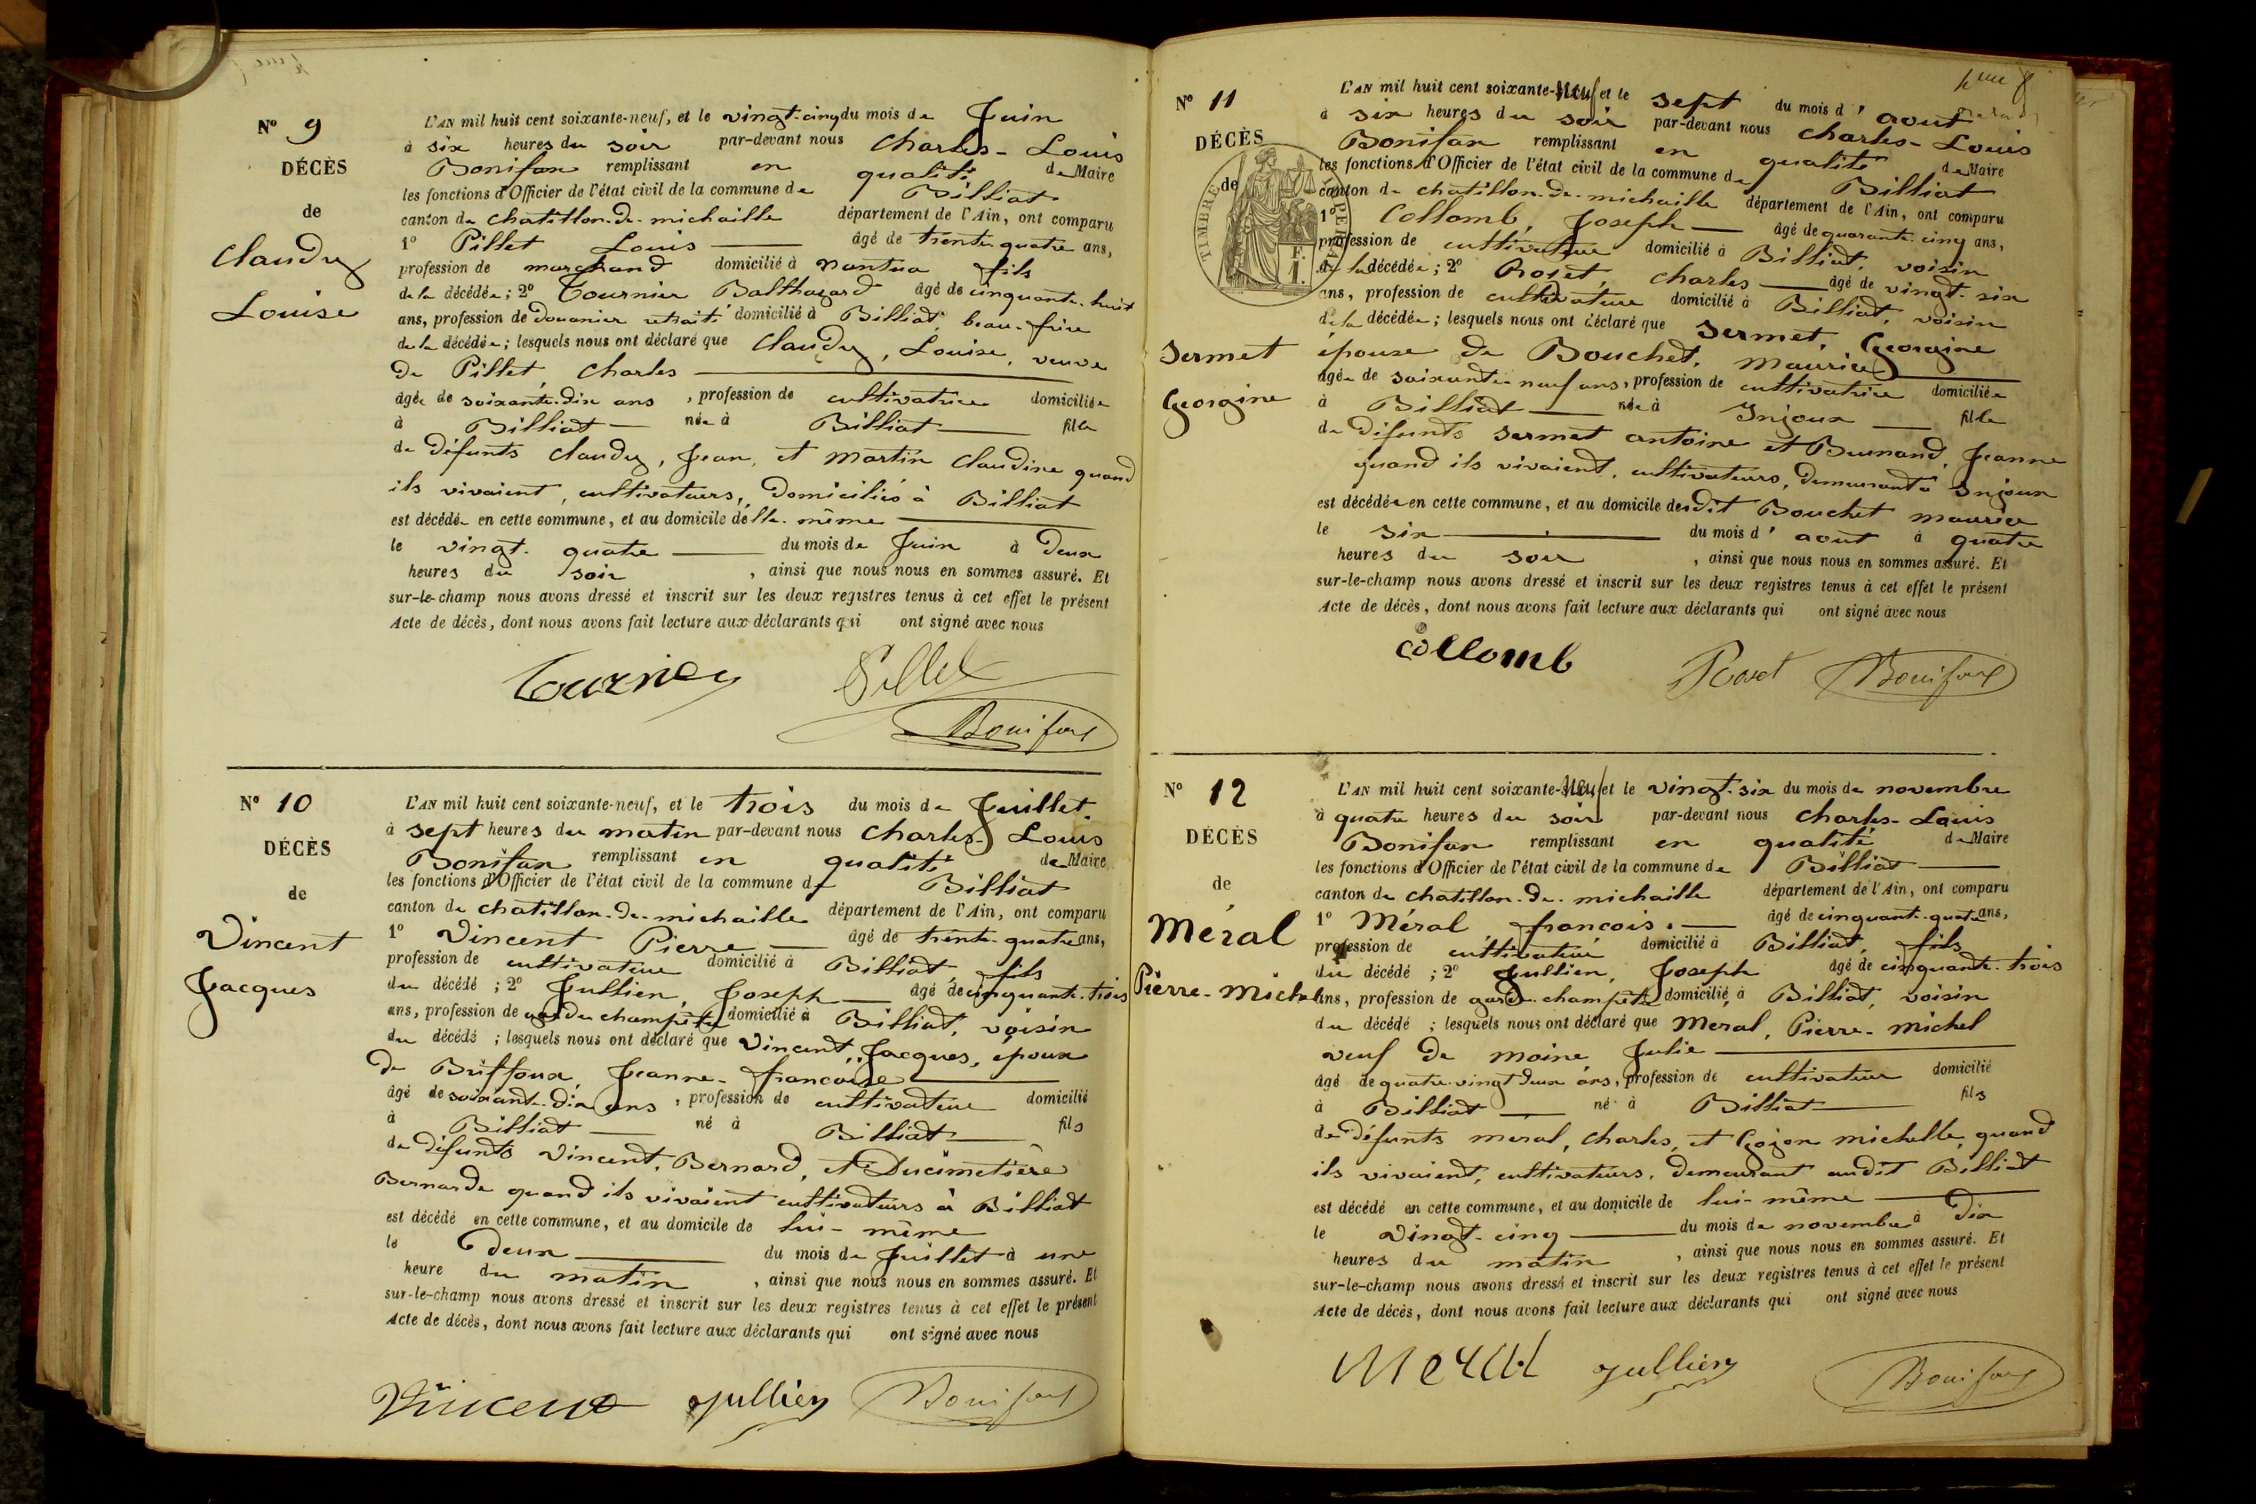 N° 9
DÉCÈS
de
Claudy
Louise
L'AN mil huit cent soixante-neuf, et le vingt-cinq du mois de Juin
à six heures du soir par-devant nous Charles-Louis
Bonifan remplissant en qualité de Maire
les fonctions d'Officier de l'état civil de la commune de Billiat
canton de chatillon-de-michaille département de l'Ain, ont comparu
1° Pillet Louis âgé de trente-quatre ans,
profession de marchand domicilié à Nantua fils
de la décédée; 2° Tournier Balthazard âgé de cinquante-huit
ans, profession de douanier retraité domicilié à Billiat, beau-frère
de la décédée; lesquels nous ont déclaré que Claudy, Louise, veuve
de Pillet, Charles
âgée de soixante-dix ans, profession de cultivatrice domiciliée
à Billiat née à Billiat fille
de défunts Claudy, Jean, et Martin Claudine quand
ils vivaient, cultivateurs, domiciliés à Billiat
est décédée en cette commune, et au domicile d'elle-même
le vingt-quatre du mois de Juin à deux
heures du soir, ainsi que nous nous en sommes assuré. Et
sur-le-champ nous avons dressé et inscrit sur les deux registres tenus à cet effet le présent
Acte de décès, dont nous avons fait lecture aux déclarants qui ont signé avec nous
Tournier Pillet
Bonifan
N° 10
DÉCÈS
de
Vincent
Jacques
L'AN mil huit cent soixante-neuf, et le trois du mois de Juillet
à sept heures du matin par-devant nous Charles-Louis
Bonifan remplissant en qualité de Maire
les fonctions d'Officier de l'état civil de la commune de Billiat
canton de chatillon-de-michaille département de l'Ain, ont comparu
1° Vincent Pierre âgé de trente-quatre ans,
profession de cultivateur domicilié à Billiat, fils
du décédé; 2° Jullien, Joseph âgé de cinquante-trois
ans, profession de garde champêtre domicilié à Billiat, voisin
du décédé; lesquels nous ont déclaré que Vincent, Jacques, époux
de Briffoux, Jeanne-françoise
âgé de soixante-dix ans, profession de cultivateur domicilié
à Billiat né à Billiat fils
de défunts Vincent, Bernard, et Ducimetière
Bernarde quand ils vivaient cultivateurs à Billiat
est décédé en cette commune, et au domicile de lui-même
le deux du mois de Juillet à une
heure du matin, ainsi que nous nous en sommes assuré. Et
sur-le-champ nous avons dressé et inscrit sur les deux registres tenus à cet effet le présent
Acte de décès, dont nous avons fait lecture aux déclarants qui ont signé avec nous
Vincent Jullien Bonifan
N° 11
DÉCÈS
de
TIMBRE IMPERIAL
1 F.
Sermet
Georgine
L'AN mil huit cent soixante-neuf et le sept du mois d'aout
à six heures du soir par-devant nous Charles-Louis
Bonifan remplissant en qualité de Maire
les fonctions d'Officier de l'état civil de la commune de Billiat
canton de chatillon-de-michaille département de l'Ain, ont comparu
1° Collomb, Joseph âgé de quarante-cinq ans,
profession de cultivateur domicilié à Billiat, voisin
de la décédée; 2° Roset, Charles âgé de vingt-six
ans, profession de cultivateur domicilié à Billiat, voisin
de la décédée; lesquels nous ont déclaré que Sermet, Georgine
épouse de Bouchet, Maurice
âgée de soixante-neuf ans, profession de cultivatrice domiciliée
à Billiat née à Injoux fille
de défunts Sermet antoine et Burnand, Jeanne
quand ils vivaient, cultivateurs, demeurant à Injoux
est décédée en cette commune, et au domicile dudit Bouchet Maurice
le six du mois d'aout à quatre
heures du soir, ainsi que nous nous en sommes assuré. Et
sur-le-champ nous avons dressé et inscrit sur les deux registres tenus à cet effet le présent
Acte de décès, dont nous avons fait lecture aux déclarants qui ont signé avec nous
collomb Roset Bonifan
N° 12
DÉCÈS
de
Méral
Pierre-Michel
L'AN mil huit cent soixante-neuf et le vingt-six du mois de novembre
à quatre heures du soir par-devant nous Charles-Louis
Bonifan remplissant en qualité de Maire
les fonctions d'Officier de l'état civil de la commune de Billiat
canton de chatillon-de-michaille département de l'Ain, ont comparu
1° Méral, françois âgé de cinquante-quatre ans,
profession de cultivateur domicilié à Billiat, fils
du décédé; 2° Jullien, Joseph âgé de cinquante-trois
ans, profession de garde-champêtre domicilié à Billiat, voisin
du décédé; lesquels nous ont déclaré que Meral, Pierre-Michel
veuf de Moine Julie
âgé de quatre-vingt deux ans, profession de cultivateur domicilié
à Billiat né à Billiat fils
de défunts meral, Charles, et Gojon michelle, quand
ils vivaient, cultivateurs, demeurant audit Billiat
est décédé en cette commune, et au domicile de lui-même
le vingt-cinq du mois de novembre à dix
heures du matin, ainsi que nous nous en sommes assuré. Et
sur-le-champ nous avons dressé et inscrit sur les deux registres tenus à cet effet le présent
Acte de décès, dont nous avons fait lecture aux déclarants qui ont signé avec nous
Meral Jullien Bonifan